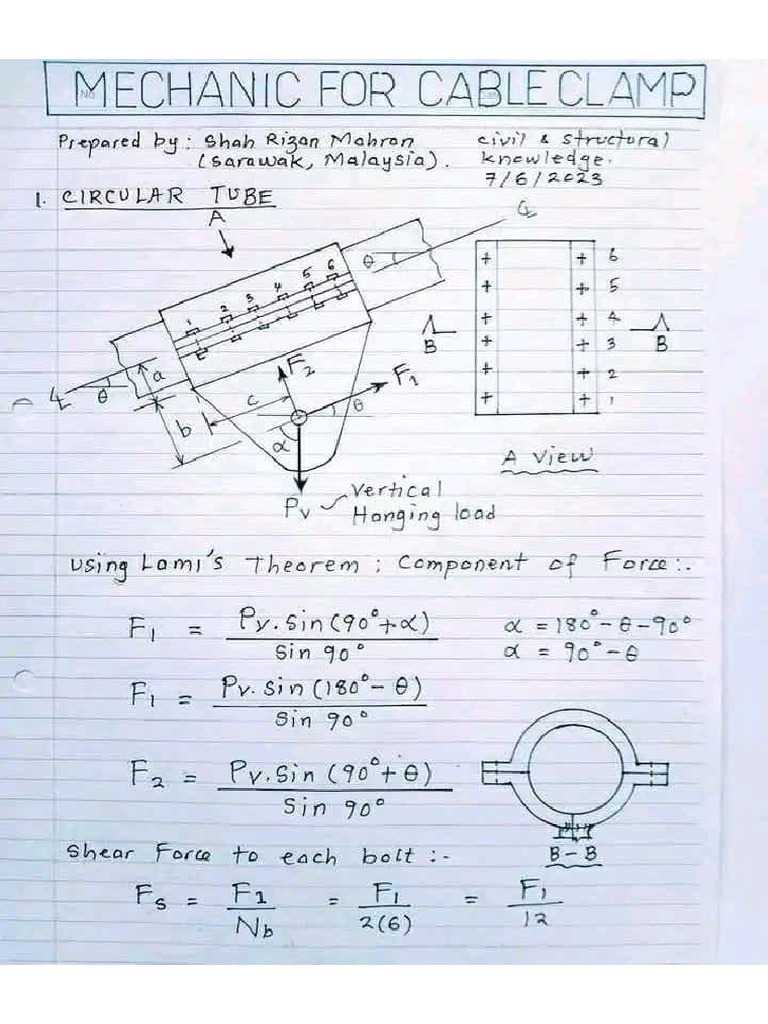 MECHANIC FOR CABLE CLAMP
Prepared by : Shah Rizan Mahran
(Sarawak, Malaysia).
civil & structural
knowledge.
7/6/2023
1. CIRCULAR TUBE
A
℄
θ
1 2 3 4 5 6
a
θ
℄
b
c
F2
F1
θ
α
Pv
Vertical
Hanging load
6
5
4
3
2
1
B
B
A view
Using Lami's Theorem ; Component of Force:.
F1 = Pv.Sin(90°+α) / Sin 90°
α = 180° - θ - 90°
α = 90° - θ
F1 = Pv. Sin (180° - θ) / Sin 90°
F2 = Pv.Sin (90° + θ) / Sin 90°
B - B
Shear Force to each bolt :-
Fs = F1 / Nb = F1 / 2(6) = F1 / 12